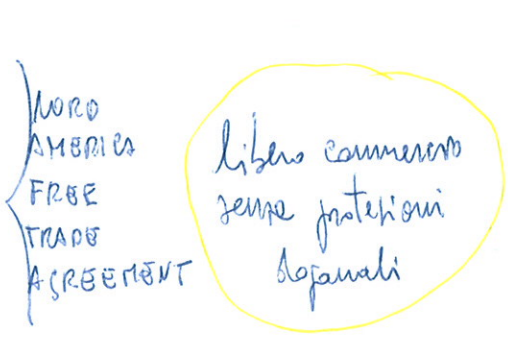 NORD
AMERICA
FREE
TRADE
AGREEMENT
libero commercio
senza protezioni
doganali